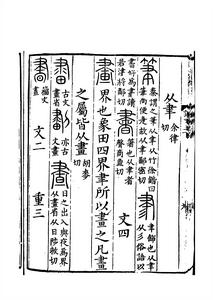 从聿 余律切
筆 秦謂之筆从聿从竹徐鍇曰筆尚便疌故从聿鄙密切 𦘔 聿飾也从聿从彡俗語以
書好爲𦘔讀若津將鄰切 書 箸也从聿者聲商魚切 文四
畫 界也象田四界聿所以畫之凡畫
之屬皆从畫 胡麥切
古文畫省 劃 亦古文畫 晝 日之出入與夜爲界从畫省从日陟救切
籒文晝 文二 重三